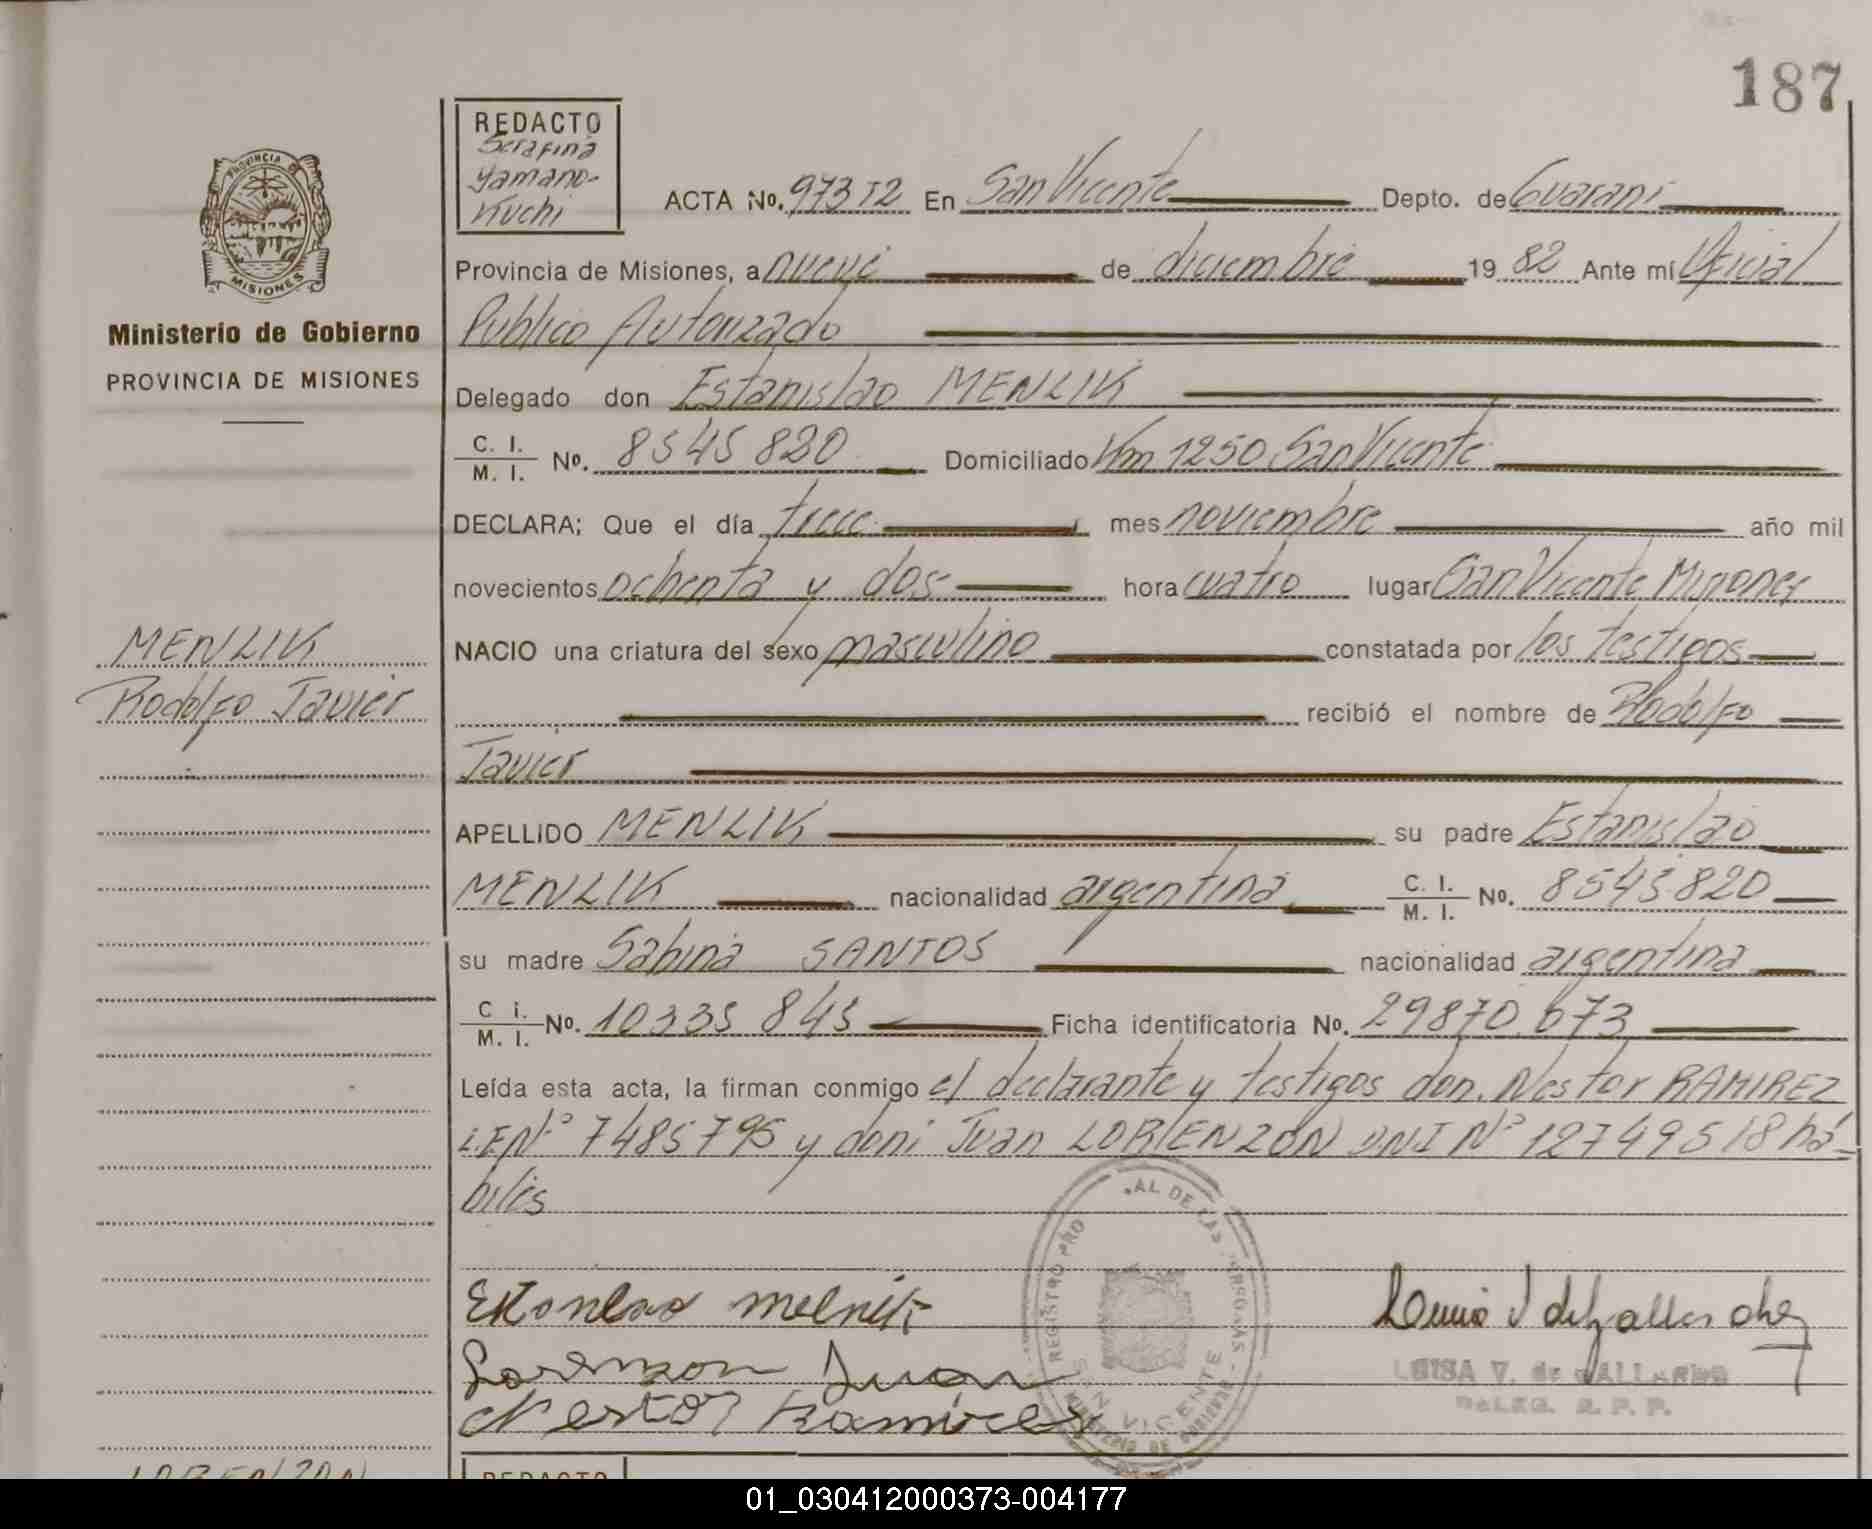 187
REDACTO
Serafina
Yamano-
Kuchi
PROVINCIA DE
MISIONES
Ministerio de Gobierno
PROVINCIA DE MISIONES
ACTA No. 973 T2 En San Vicente Depto. de Guaraní
Provincia de Misiones, a nueve de diciembre 19 82 Ante mí Oficial
Publico Autorizado
Delegado don Estanislao MENLIK
C. I. / M. I. No. 8545 820 Domiciliado Km 1250 San Vicente
DECLARA; Que el día trece mes noviembre año mil
novecientos ochenta y dos hora cuatro lugar San Vicente Misiones
MENLIK
NACIO una criatura del sexo masculino constatada por los testigos
Rodolfo Javier
recibió el nombre de Rodolfo
Javier
APELLIDO MENLIK su padre Estanislao
MENLIK nacionalidad argentina C. I. / M. I. No. 8545820
su madre Sabina SANTOS nacionalidad argentina
C I. / M. I. No. 10335 845 Ficha identificatoria No. 29870.673
Leída esta acta, la firman conmigo el declarante y testigos don. Nestor RAMIREZ
L.E Nº 7485795 y don Juan LORENZON DNI Nº 12749518 há-
biles
REGISTRO PRO AL DE LAS PERSONAS
SAN VICENTE
MINISTERIO DE GOBIERNO
Estanislao Melnik
Lorenzon Juan
Nestor Ramirez
LUISA V. de GALLARDO
DELEG. R. P. P.
LORENZON
REDACTO
01_030412000373-004177